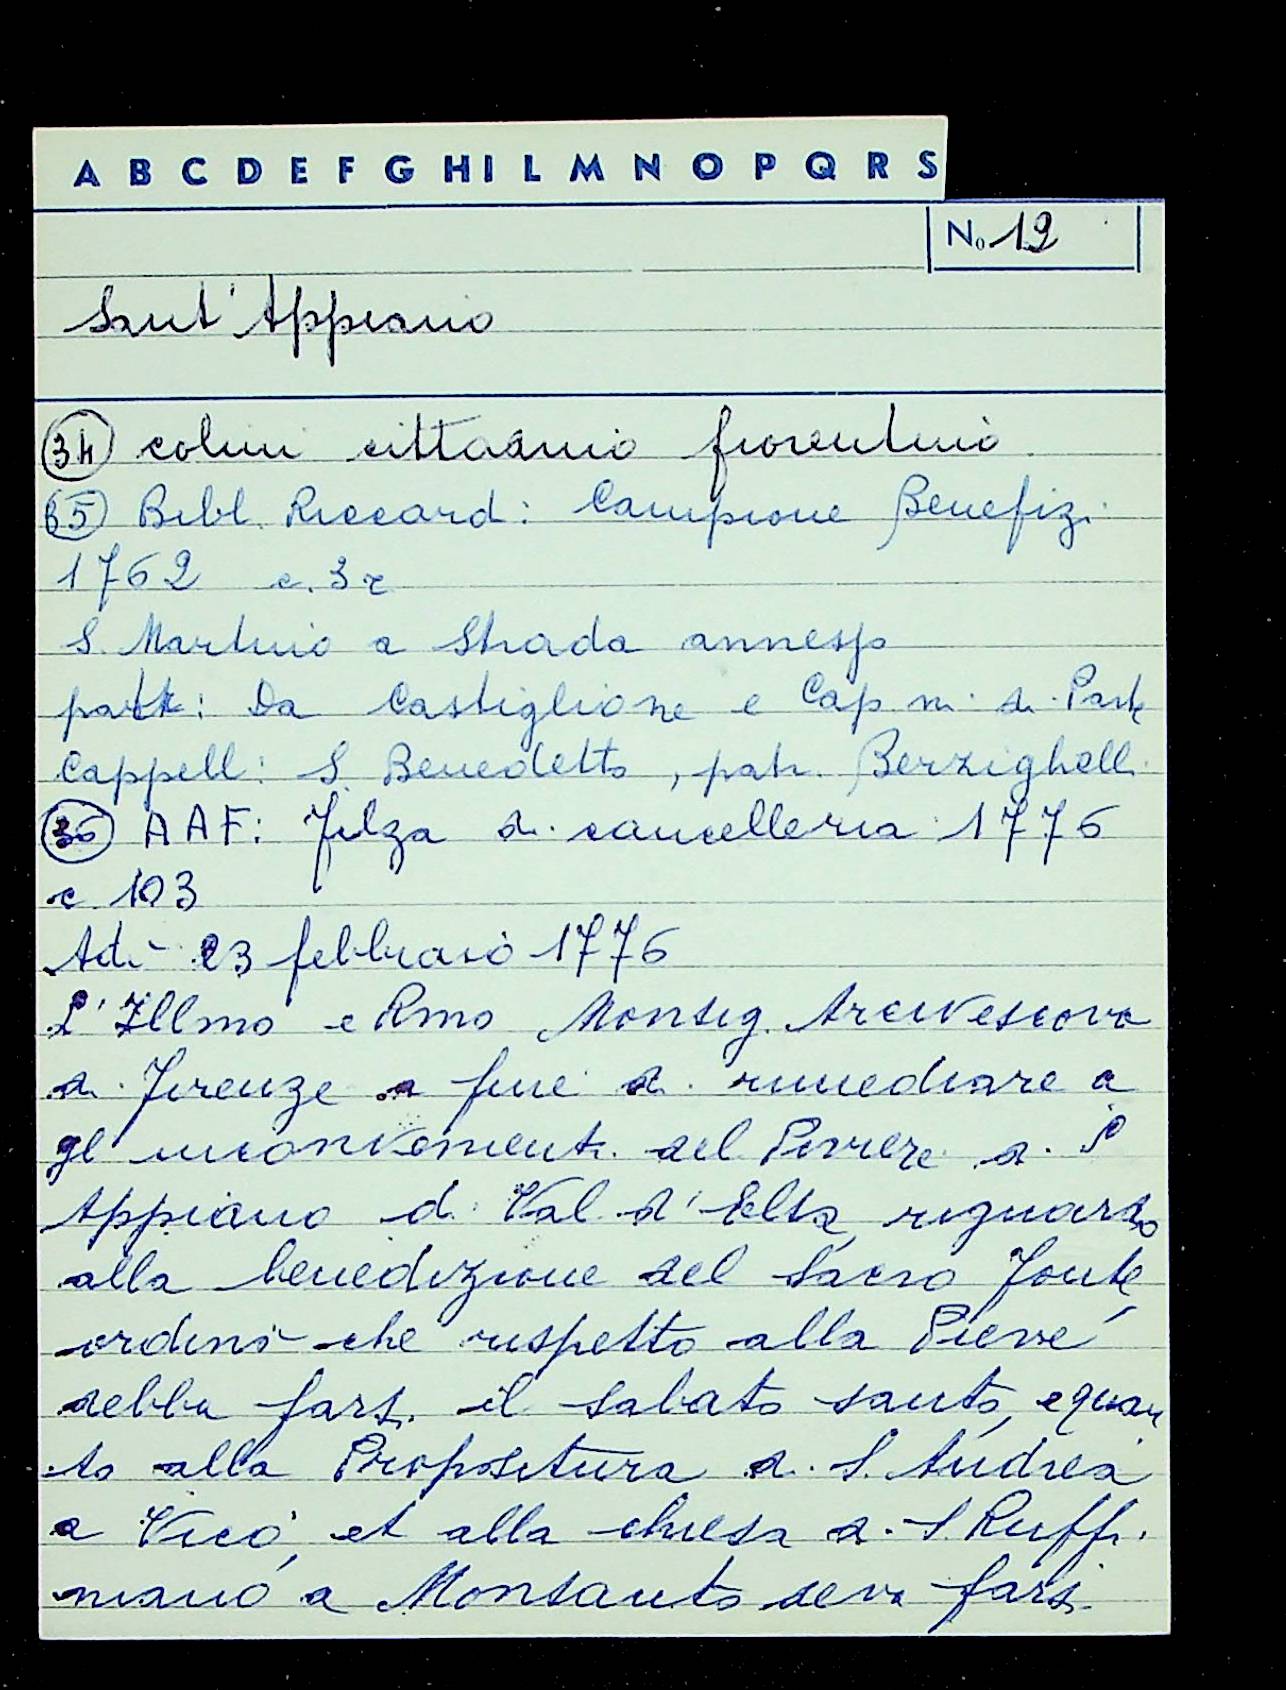 A B C D E F G H I L M N O P Q R S
No 19
Sant'Appiano
34 colini cittadino fiorentino
35 Bibl. Riccard: Campione Benefizi
1762 c. 3r
S. Martino a Strada annesso
patr: Da Castiglione e Cap.ni di Parte
Cappell: S. Benedetto, patr. Berzighelli
36 AAF: Filza di cancelleria 1776
c. 103
Adì 23 febbraio 1776
L'Illmo e Rmo Monsig. Arcivescovo
di Firenze a fine di rimediare a
gl'inconvenienti del Piviere di S
Appiano di Val d'Elsa, riguardo
alla benedizione del Sacro Fonte
ordinò che rispetto alla Pieve
debba farsi il sabato santo, e quan
to alla Propositura di S. Andrea
a Vico, et alla chiesa di S. Ruffi
niano a Monsanto deva farsi